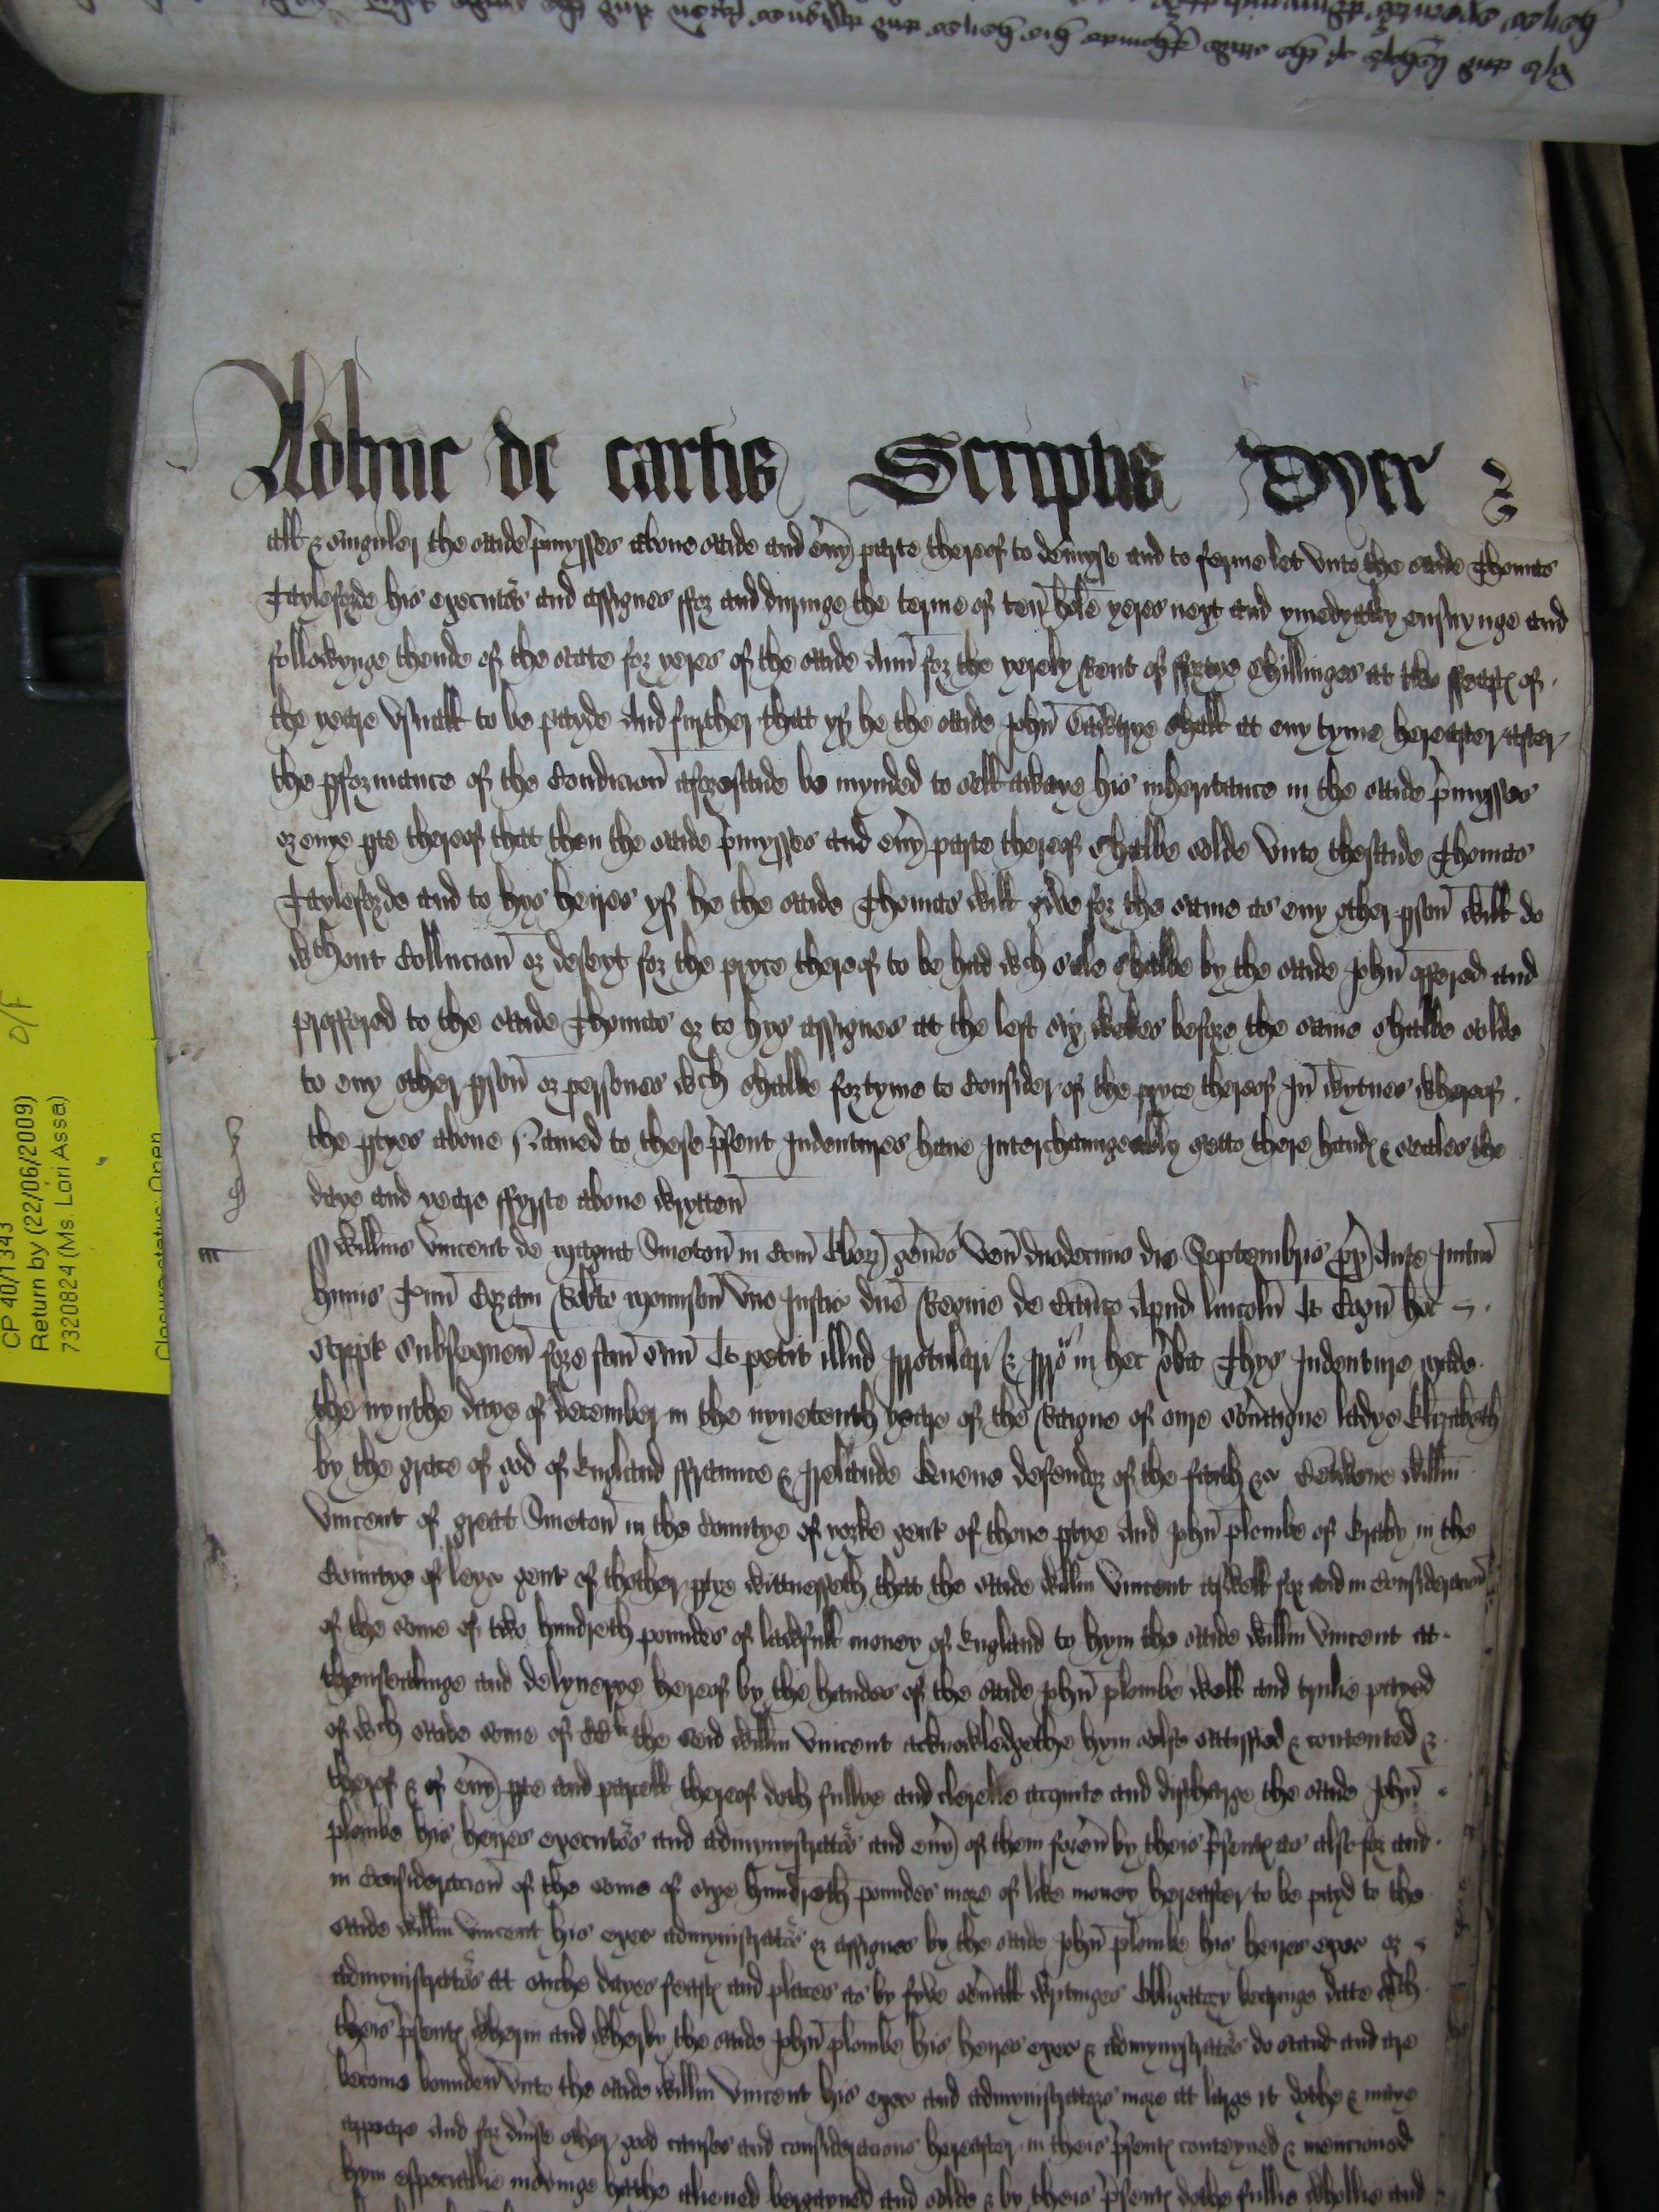 Adhuc de cartis Scriptis Dyer
all & singuler the saide p'mysses above saide and eu'y parte thereof to demyse and to ferme let vnto the saide Thomas
Tayleforde his executors and assignes ffor and duringe the terme of ten hole yeres next and ymedyatly ensuynge and
followynge thende of the state for yeres of the saide Ann for the yerely Rent of ffortye shillinges at two ffeastes of
the yeare vsuall to be payde And further that yf he the saide John shall at eny tyme hereafter after
the pformance of the Condicion aforesaide be mynded to sell awaye his inherytance in the saide p'mysses
or enye pte thereof that then the saide p'mysses and eu'y parte thereof shalbe solde vnto thesaide Thomas
Tayleforde and to hys heires yf he the saide Thomas will gyve for the same as eny other pson will do
wthout Collucion or deseyt for the pryce thereof to be had wch sale shalbe by the saide John offered and
proffered to the saide Thomas or to hys assignes at the lest six wekes before the same shalbe solde
to eny other pson or persones wch shalbe for tyme to Consider of the pryce thereof In wytnes whereof
the ptyes above Named to these p'sent Indentures have Interchaungeably sette there handes & seales the
daye and yeare ffyrste above wrytten
Willms Vincent de magna Smeton in Com Ebor) gen'os ven duodecimo die Septembris Ante
huius Termi Coram Rob'to Mounson vno Justic' dne Regine de Banco Apud lincoln Et Cogn hoc
script Subsequen fore f'cm suu' Et petit illud Irrotulari & Irro' in hec v'ba Thys Indenture made
the nynthe daye of December in the nynetenth yeare of the Raigne of oure sov'aigne ladye Elizabeth
by the grace of god of England ffraunce & Irelande Quene defendor of the faith &c Betwene Willm
Vincent of great Smeton in the Countye of yorke gent of thone ptye And John plombe of in the
Countye of leyc gent of thother ptye wittnesseth that the saide Willm Vincent aswell for and in Consideracion
of the some of two hundreth poundes of lawfull money of England to hym the saide Willm Vincent at
thensealinge and delyuerye hereof by the handes of the saide John plombe well and trulie payed
of wch saide some of the said Willm Vincent acknowledgethe hym selfe satisfied & contented &
therof & of eu'y pte and parcell thereof doth fullye and clerelie acquite and discharge the saide John
plombe his heires executors and admynystrators and eu'y of them forev' by theis p'sentes as also for and
in Consideracion of the some of syxe hundreth poundes more of like money hereafter to be payd to the
saide Willm Vincent his exec admynistrators or assignes by the saide John plombe his heires exec or
admynistrators at suche dayes feastes and places as by fyve sev'all wrytinges Obligatory bearinge date wth
theis p'sentes wherin and wherby the saide John plombe his heires exec & admynystrators do stand and are
become bounden vnto the saide Willm Vincent his exec and admynistrators more at large it dothe & maye
appeare And for div'se other good causes and consideracions hereafter in theis p'sentes conteyned & mencioned
hym especiallie movinge hathe aliened bargayned and solde & by theis p'sentes dothe fullie whollie and
CP 40/1343
Return by (22/06/2009)
7320824 (Ms. Lori Assa)
Closure status: Open